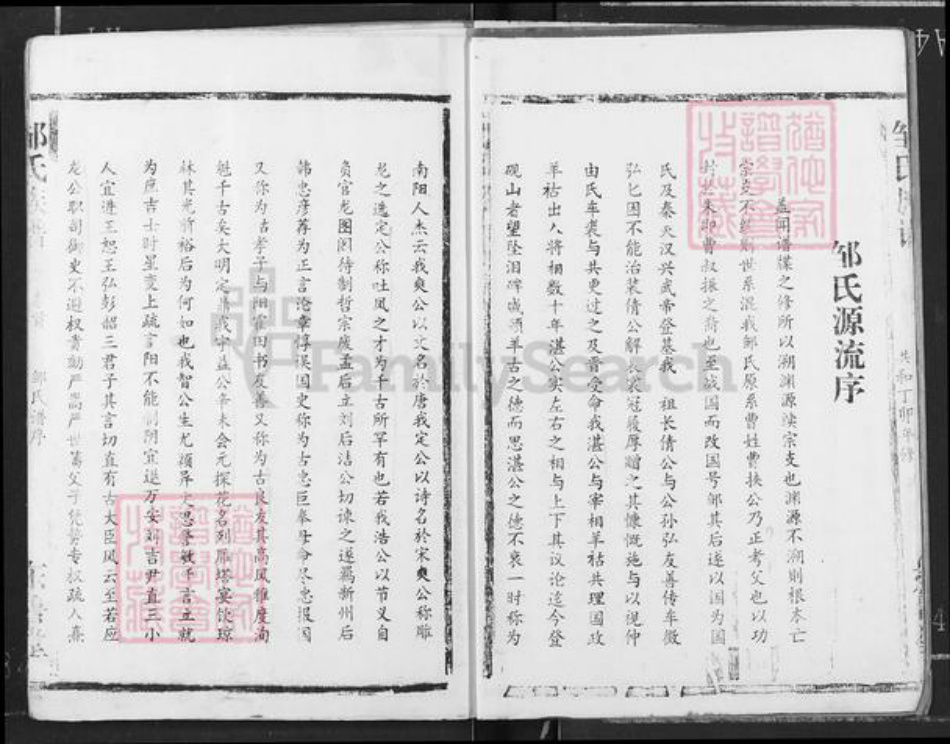 邹氏源流序
盖闻谱牒之修所以溯渊源续宗支也渊源不溯则根本亡
宗支不续则世系混我邹氏原系曹姓曹挟公乃正考父也以功
封于朱即曹叔振之裔也至战国而改国号邹其后遂以国为国
氏及秦灭汉兴武帝登基我 祖长倩公与公孙弘友善传车徵
弘乞因不能治装倩公解衣裳冠履厚赠之其慷慨施与以视仲
由氏车裘与共更过之及晋受命我湛公与宰相羊祜共理国政
羊祜出入将相数十年湛公实左右之相与上下其议论迄今登
砚山者望坠泪碑咸颂羊古之德而思湛公之德不衰一时称为
南阳人杰云我奭公以文名於唐我定公以诗名於宋奭公称雕
龙之选定公称吐凤之才为千古所罕有也若我浩公以节义自
负官龙图阁待制哲宗废孟后立刘后洁公切谏之遂羁新州后
韩忠彦荐为正言沦章惇误国史称为古忠臣奉母命尽忠报国
又称为祜孝子与阳霍田书友善又称为古良友其高风雅度洵
魁千古矣大明定鼎我宇益公务未会元探花名列雁塔宴饮琼
林其光前裕后为何如也我智公生尤颖异史思警敏千言立就
为庶吉士时星变上疏言阳不能制阴宜退万安刘吉尹直三小
人宜进王恕王弘彭韶三君子其言切直有古大臣风云至若应
龙公职司御史不避权贵劾严嵩严世蕃父子凭势专权疏入熹
邹氏
邹氏谱序
邹氏
共和丁卯年修
FamilySearch